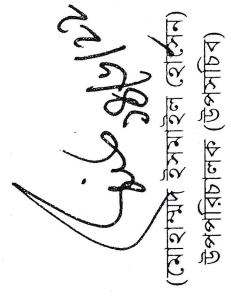 (মোহাম্মদ ইসমাইল হোসেন)
উপপরিচালক (উপসচিব)